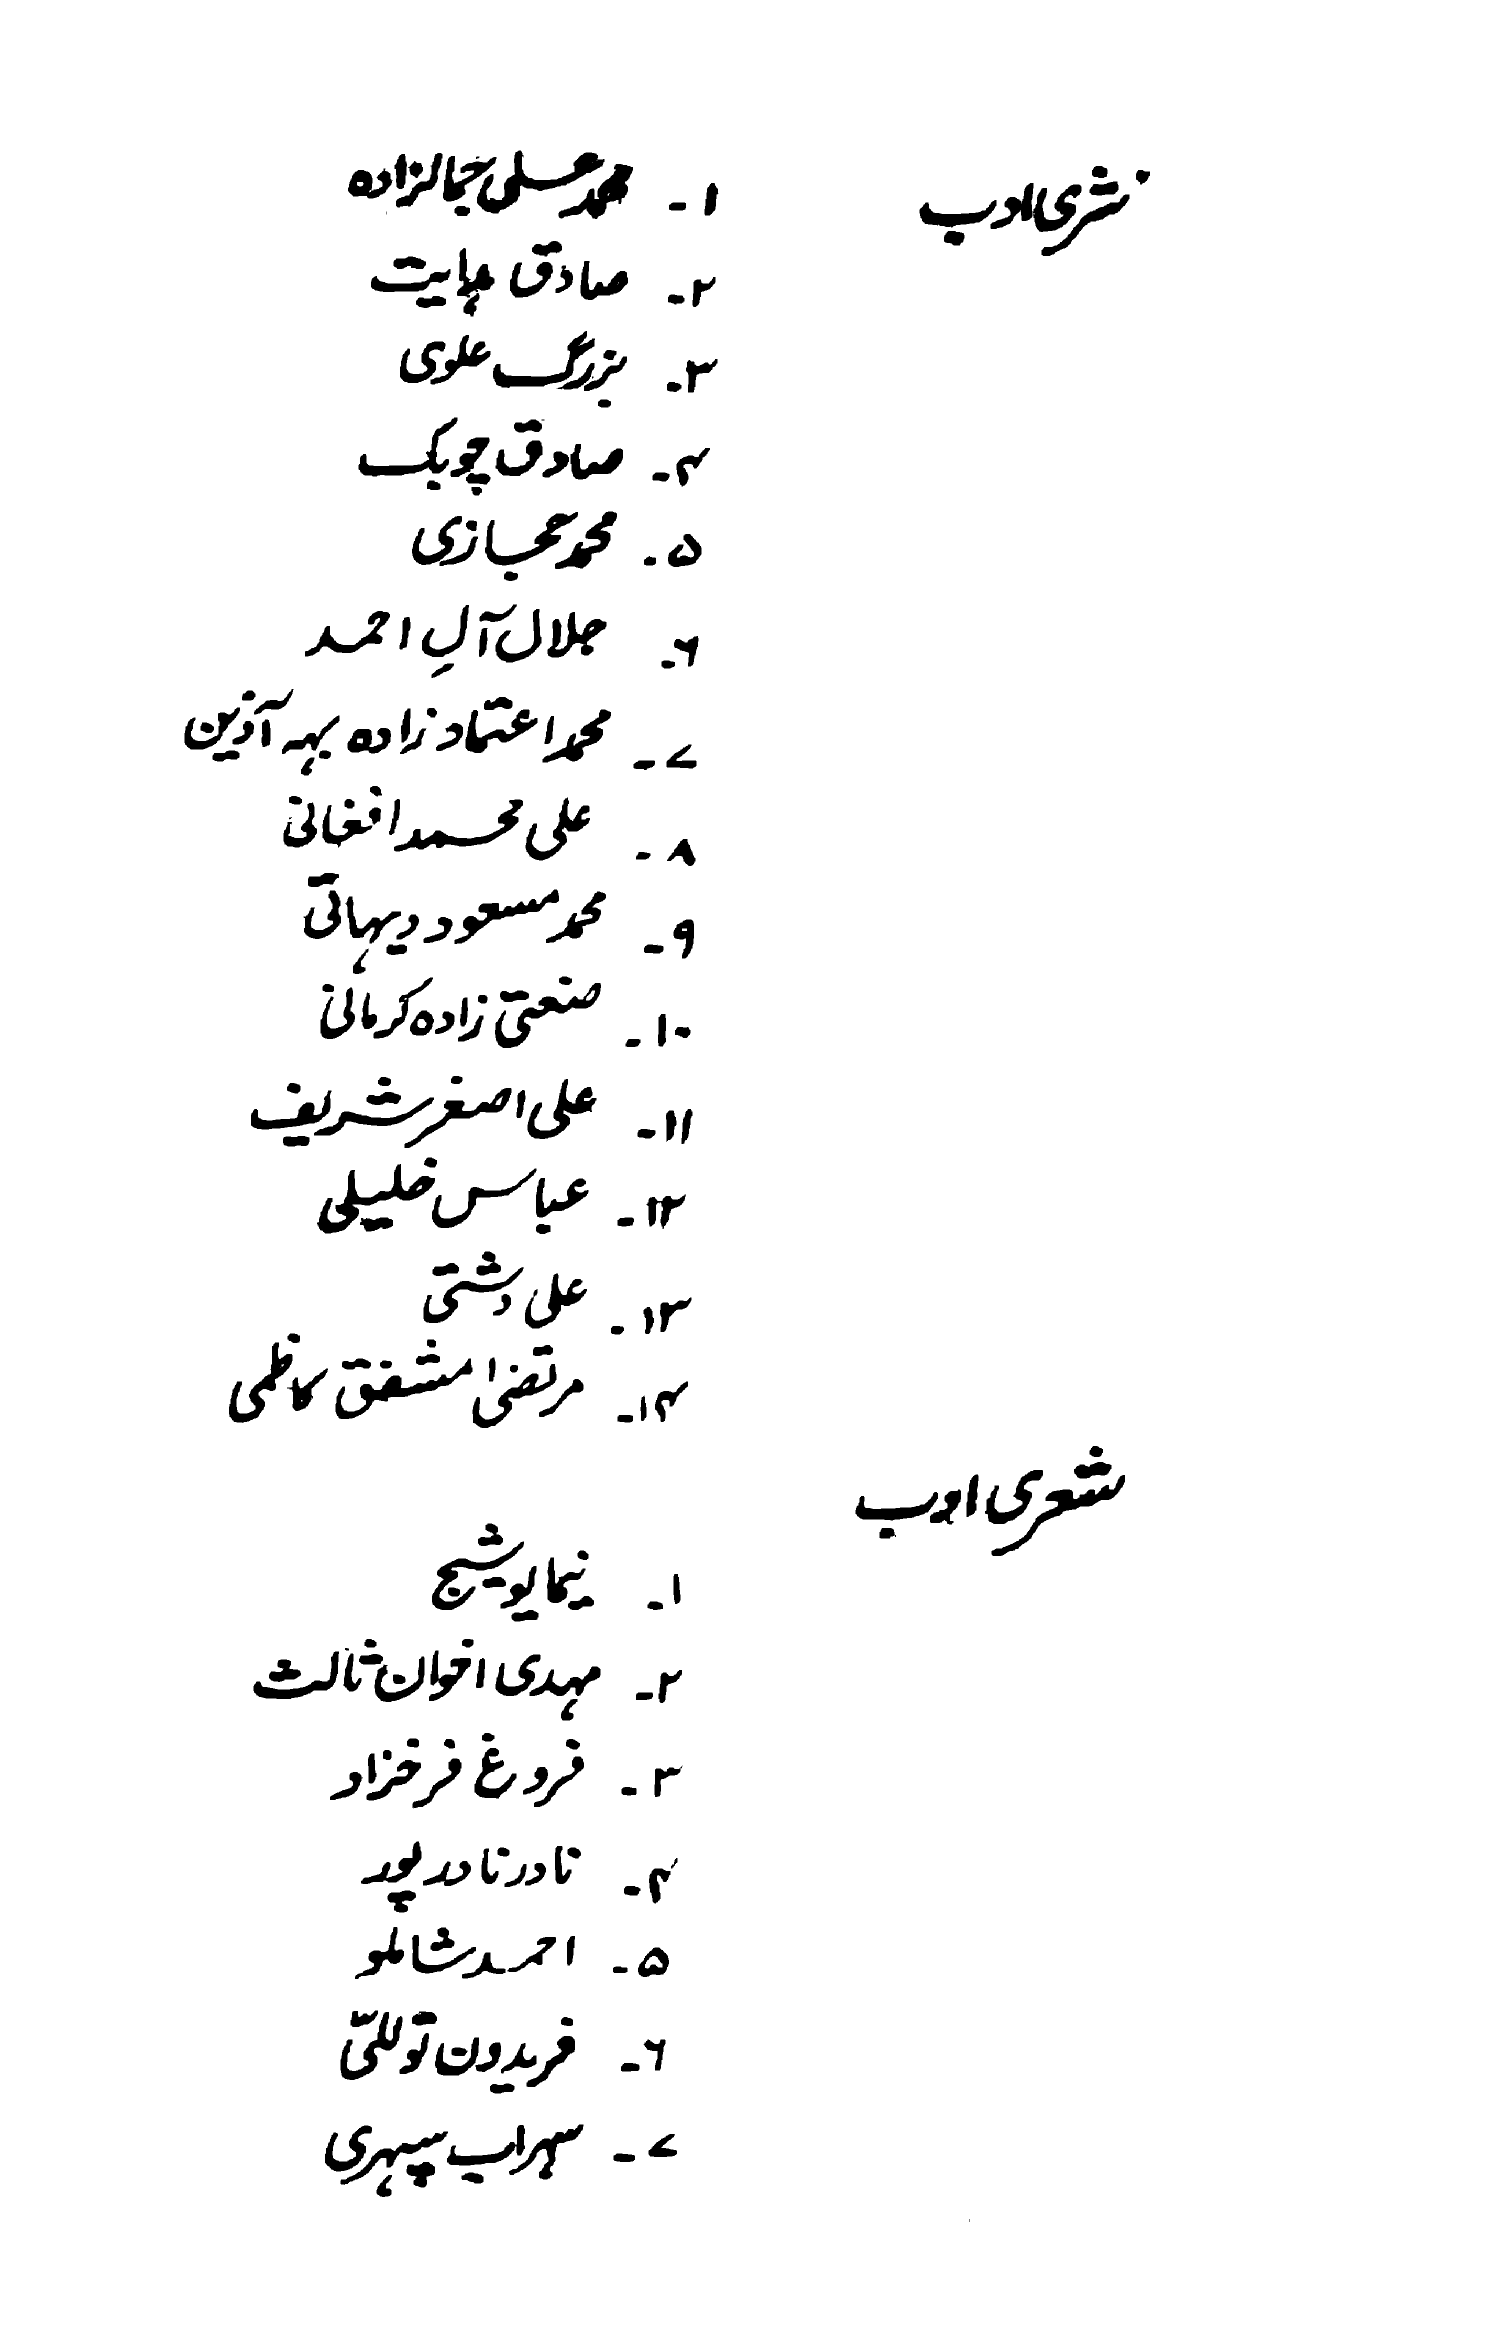 نثری ادب
۱۔ محمد علی جمالزادہ
۲۔ صادق ہدایت
۳۔ بزرگ علوی
۴۔ صادق چوبک
۵۔ محمد حجازی
۶۔ جلال آلِ احمد
۷۔ محمد اعتماد زادہ بہہ آذین
۸۔ علی محمد افغانی
۹۔ محمد مسعود دیہاتی
۱۰۔ صنعتی زادہ کرمانی
۱۱۔ علی اصغر شریف
۱۲۔ عباس خلیلی
۱۳۔ علی دشتی
۱۴۔ مرتضیٰ مشفق کاظمی
شعری ادب
۱۔ نیما یوشیج
۲۔ مہدی اخوان ثالث
۳۔ فروغ فرخزاد
۴۔ نادر نادر پور
۵۔ احمد شاملو
۶۔ فریدون توللّی
۷۔ سہراب سپہری